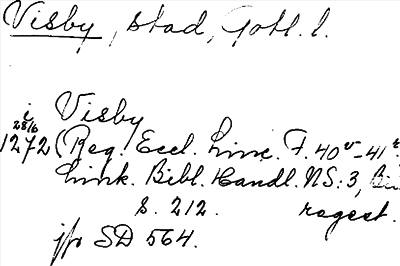 Visby, stad, Gotl. l.
i Visby
28/6
1272 (Reg. Eccl. Linc. F. 40v - 41r.
Link. Bibl. Handl. NS: 3,
S. 212. regest.
jfr SD 564.